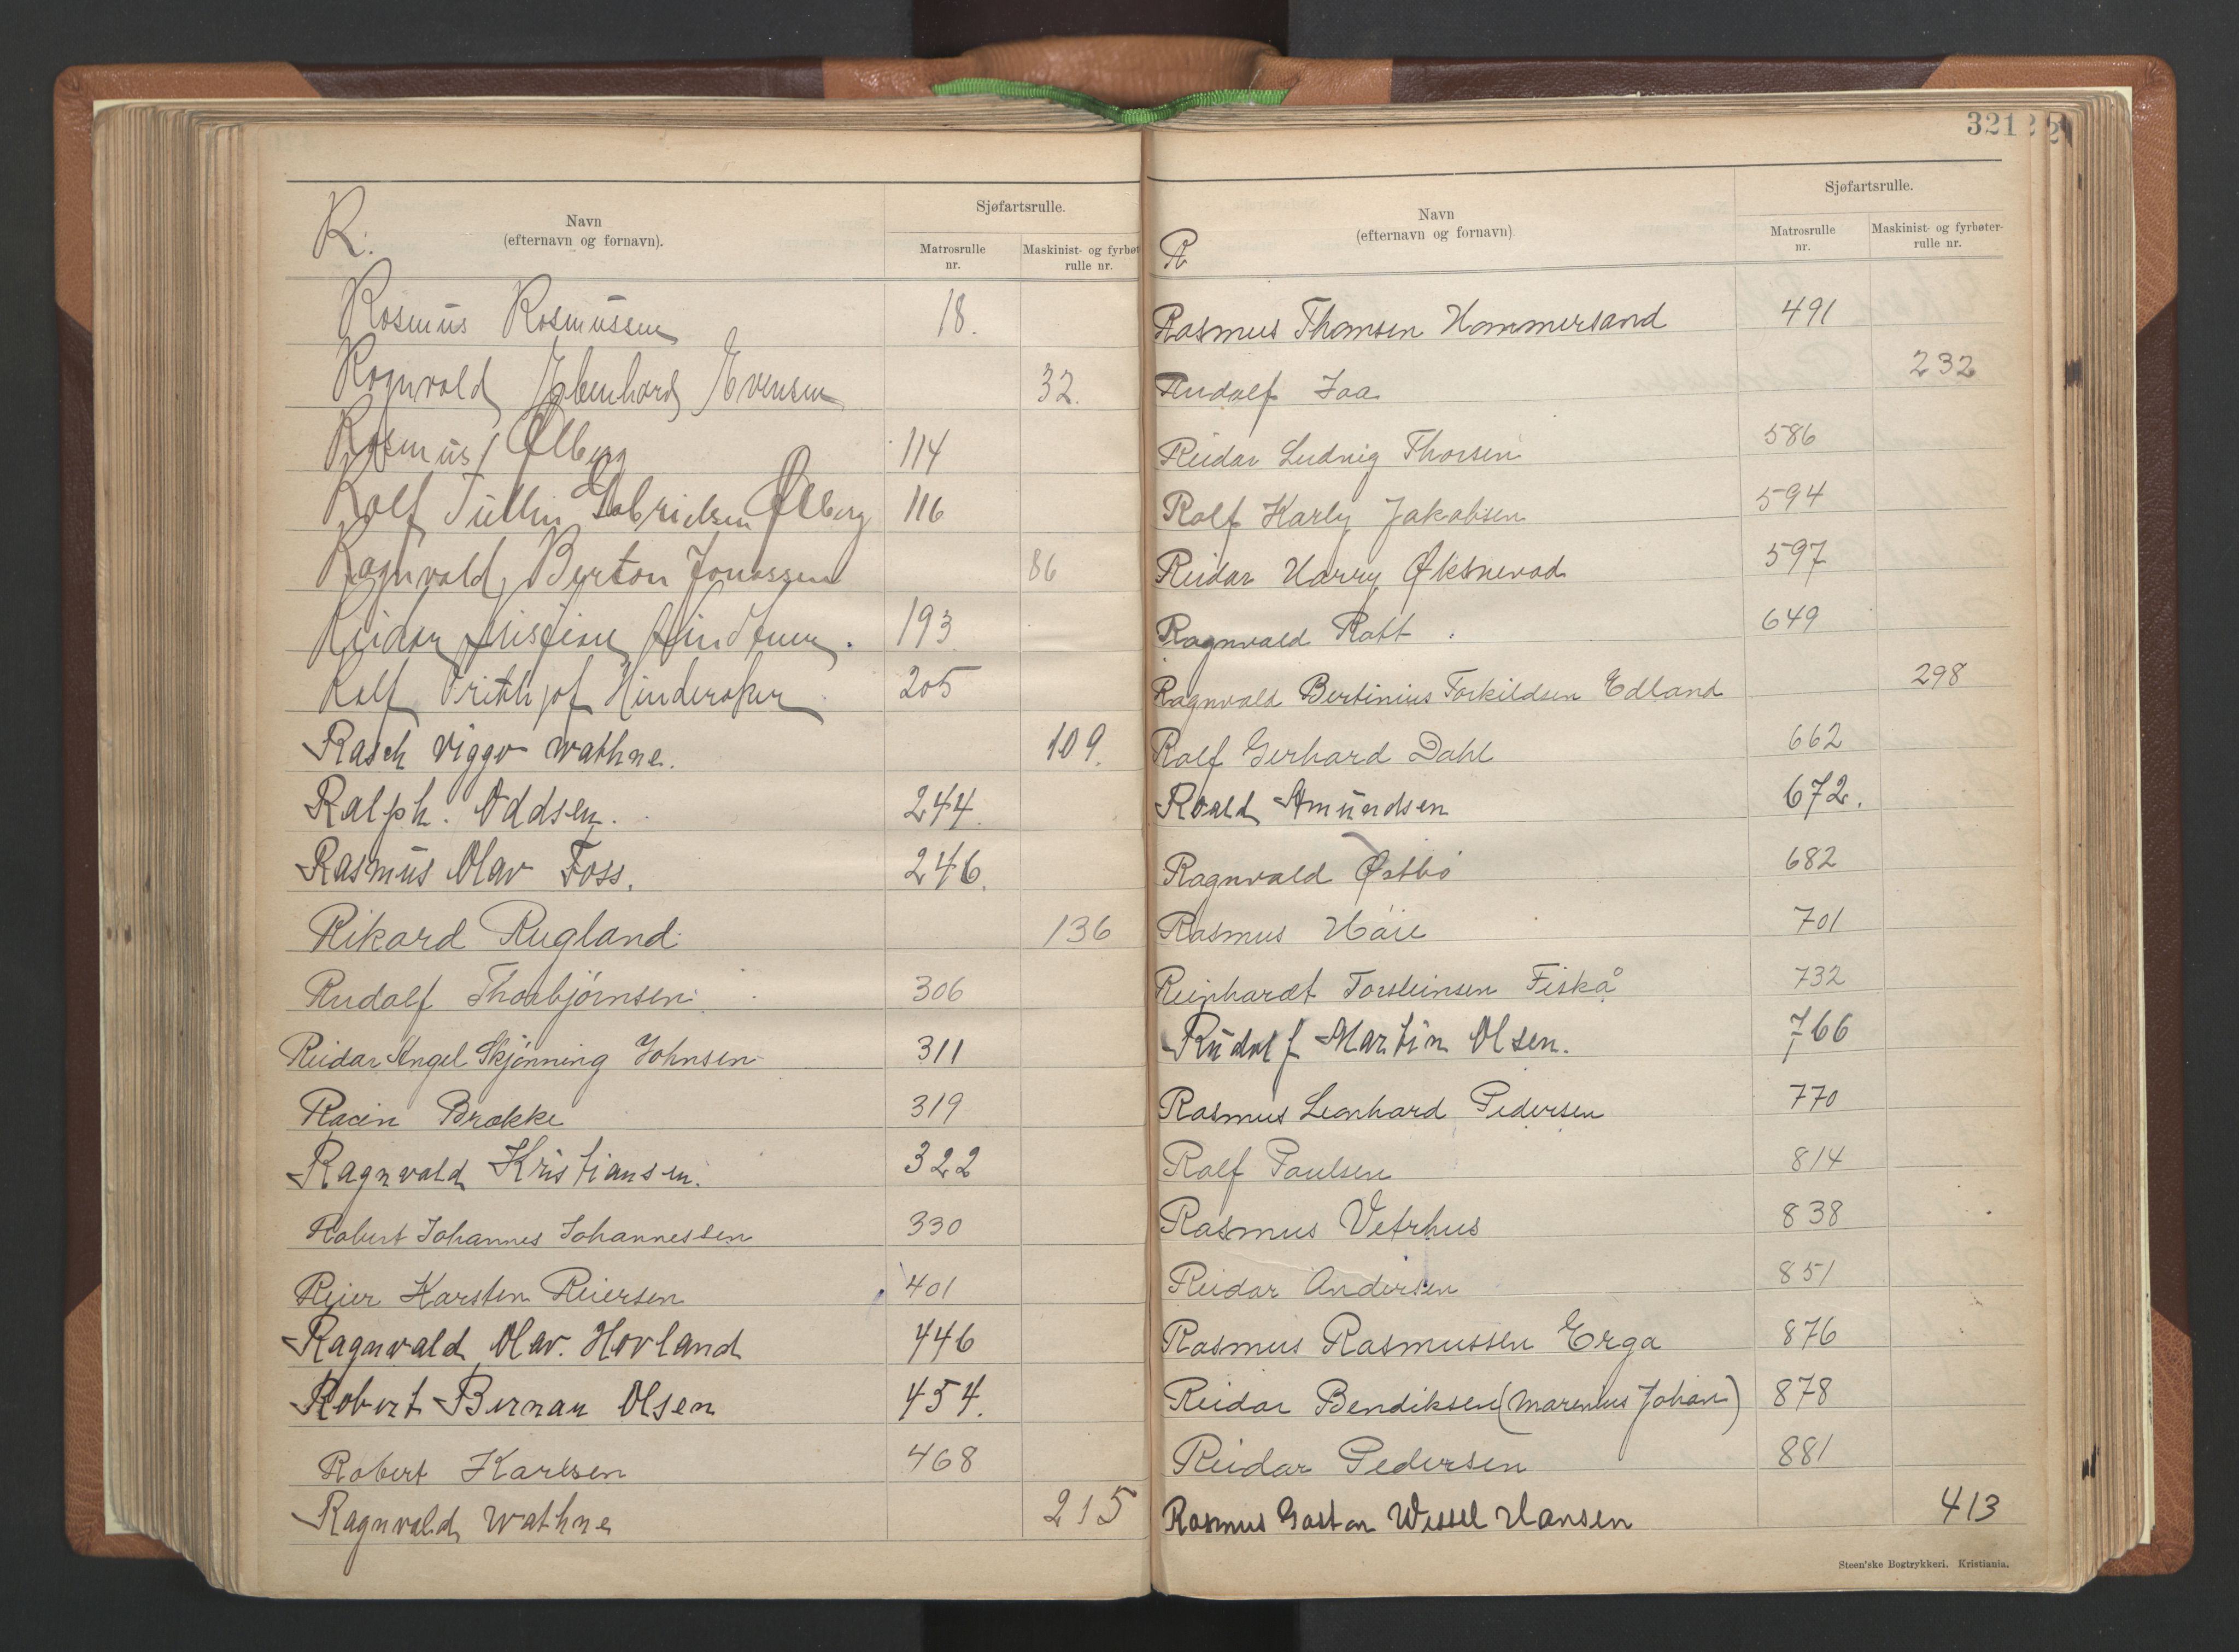 R.
Navn
(efternavn og fornavn).
Sjøfartsrulle.
Matrosrulle
nr.
Maskinist- og fyrbøt
rulle nr.
Rasmus Rasmussen 18.
Ragnvald Evensen 32.
Rasmus Ølberg 114
Rolf Tullin Gabrielsen Ølberg 116
Ragnvald Berton Jonassen 86
Reidar 193
Rolf Frithjof Hinderaker 205
Rasch Viggo Wathne. 109.
Ralph. Oddsen. 244.
Rasmus Olav Foss. 246.
Rikard Rugland 136
Rudolf Thorbjørnsen 306
Reidar Angel Skjønning Johnsen 311
Racin Brekke 319
Ragnvald Kristiansen. 322
Robert Johannes Johannessen 330
Reier Karsten Reiersen 401
Ragnvald Olav. Hovland 446
Robert Bernan Olsen 454.
Robert Karlsen 468
Ragnvald Wathne 215
321
R
Navn
(efternavn og fornavn)
Sjøfartsrulle.
Matrosrulle
nr.
Maskinist- og fyrbøter-
rulle nr.
Rasmus Thomsen Hommersand 491
Rudolf Joa 232
Reidar Ludvig Thorsen 586
Rolf Karly Jakobsen 594
Reidar Harry Øksnevad 597
Ragnvald Rott 649
Ragnvald Bertinius Torkildsen Edland 298
Rolf Gerhard Dahl 662
Roald Amundsen 672.
Ragnvald Østbø 682
Rasmus Høie 701
Reinhardt Torsteinsen Fiskå 732
Rudolf Martin Olsen. 766
Rasmus Leonhard Pedersen 770
Rolf Paulsen 814
Rasmus Vetrhus 838
Reidar Andersen 851
Rasmus Rasmussen Erga 876
Reidar Bendiksen (Marenius Johan) 878
Reidar Pedersen 881
Rasmus Gaston Wessel Hansen 413
Steen'ske Bogtrykkeri. Kristiania.